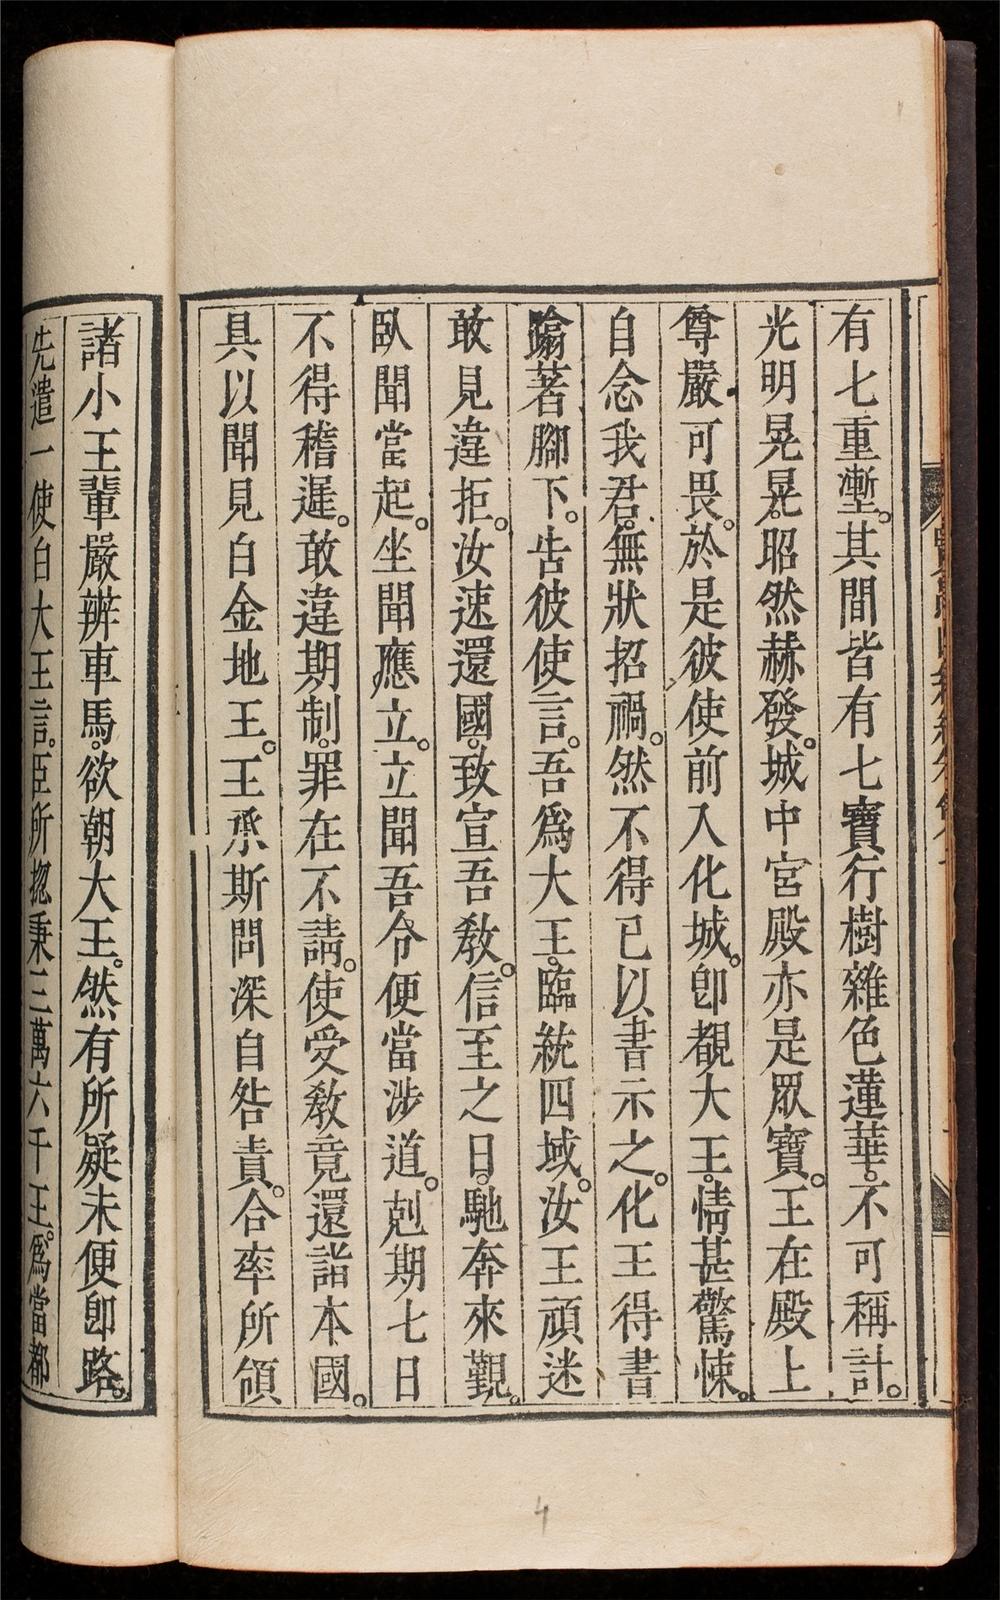 有七重壍。其間皆有七寶行樹雜色蓮華。不可稱計。
光明晃晃。昭然赫發。城中宮殿亦是眾寶。王在殿上
尊嚴可畏。於是彼使前入化城。卽覩大王。情甚驚悚。
自念我君。無狀招禍。然不得已以書示之。化王得書
蹹著腳下。告彼使言。吾爲大王。臨統四域。汝王頑迷
敢見違拒。汝速還國。致宣吾教。信至之日。馳奔來覲。
臥聞當起。坐聞應立。立聞吾令便當涉道。剋期七日
不得稽遲。敢違期制。罪在不請。使受教竟還詣本國。
具以聞見白金地王。王承斯問深自咎責。合率所領
諸小王輩嚴辨車馬。欲朝大王。然有所疑未便卽路。
先遣一使白大王言。臣所揔秉三萬六千王。爲當都